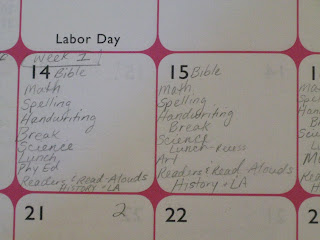 Labor Day
Week 1
14 Bible
Math
Spelling
Handwriting
Break
Science
Lunch
Phy Ed
Readers & Read Alouds
History & LA
15 Bible
Math
Spelling
Handwriting
Break
Science
Lunch
Art
Readers & Read Alouds
History & LA
21 2
22